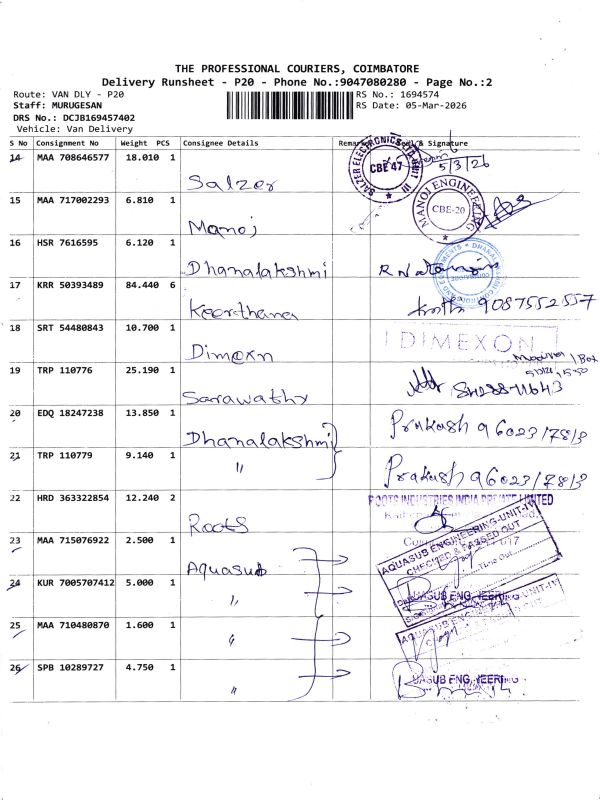 THE PROFESSIONAL COURIERS, COIMBATORE
Delivery Runsheet - P20 - Phone No.:9047080280 - Page No.:2
Route: VAN DLY - P20 RS No.: 1694574
Staff: MURUGESAN RS Date: 05-Mar-2026
DRS No.: DCJB169457402
Vehicle: Van Delivery
S No Consignment No Weight PCS Consignee Details Remarks Seal & Signature
14 MAA 708646577 18.010 1 Salzer SALZER ELECTRONICS LTD UNIT III CBE 47 5/3/26
15 MAA 717002293 6.810 1 Manoj MANOJ ENGINEERING CBE-20
16 HSR 7616595 6.120 1 Dhanalakshmi
17 KRR 50393489 84.440 6 Keerthana 9087552557
18 SRT 54480843 10.700 1 Dimexn DIMEXON 1 Box
19 TRP 110776 25.190 1 Sarawathy
20 EDQ 18247238 13.850 1 Dhanalakshmi Prakash 96023/78/3
21 TRP 110779 9.140 1 " Prakash 96023/78/3
22 HRD 363322854 12.240 2 Roots ROOTS INDUSTRIES INDIA PRIVATE LIMITED
23 MAA 715076922 2.500 1 Aquasub AQUASUB ENGINEERING-UNIT-IV CHECKED & PASSED OUT Time Out
24 KUR 7005707412 5.000 1 " AQUASUB ENGINEERING
25 MAA 710480870 1.600 1 " AQUASUB ENGINEERING-UNIT-IV
26 SPB 10289727 4.750 1 " AQUASUB ENGINEERING